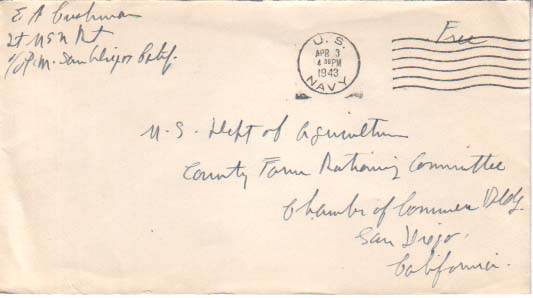 E A Cushman
Lt USN Rt
c/o P.M. San Diego Calif.
U.S.
APR 3
4 30 PM
1943
NAVY
Free
U.S. Dept of Agriculture
County Farm Rationing Committee
Chamber of Commerce Bldg.
San Diego.
California.